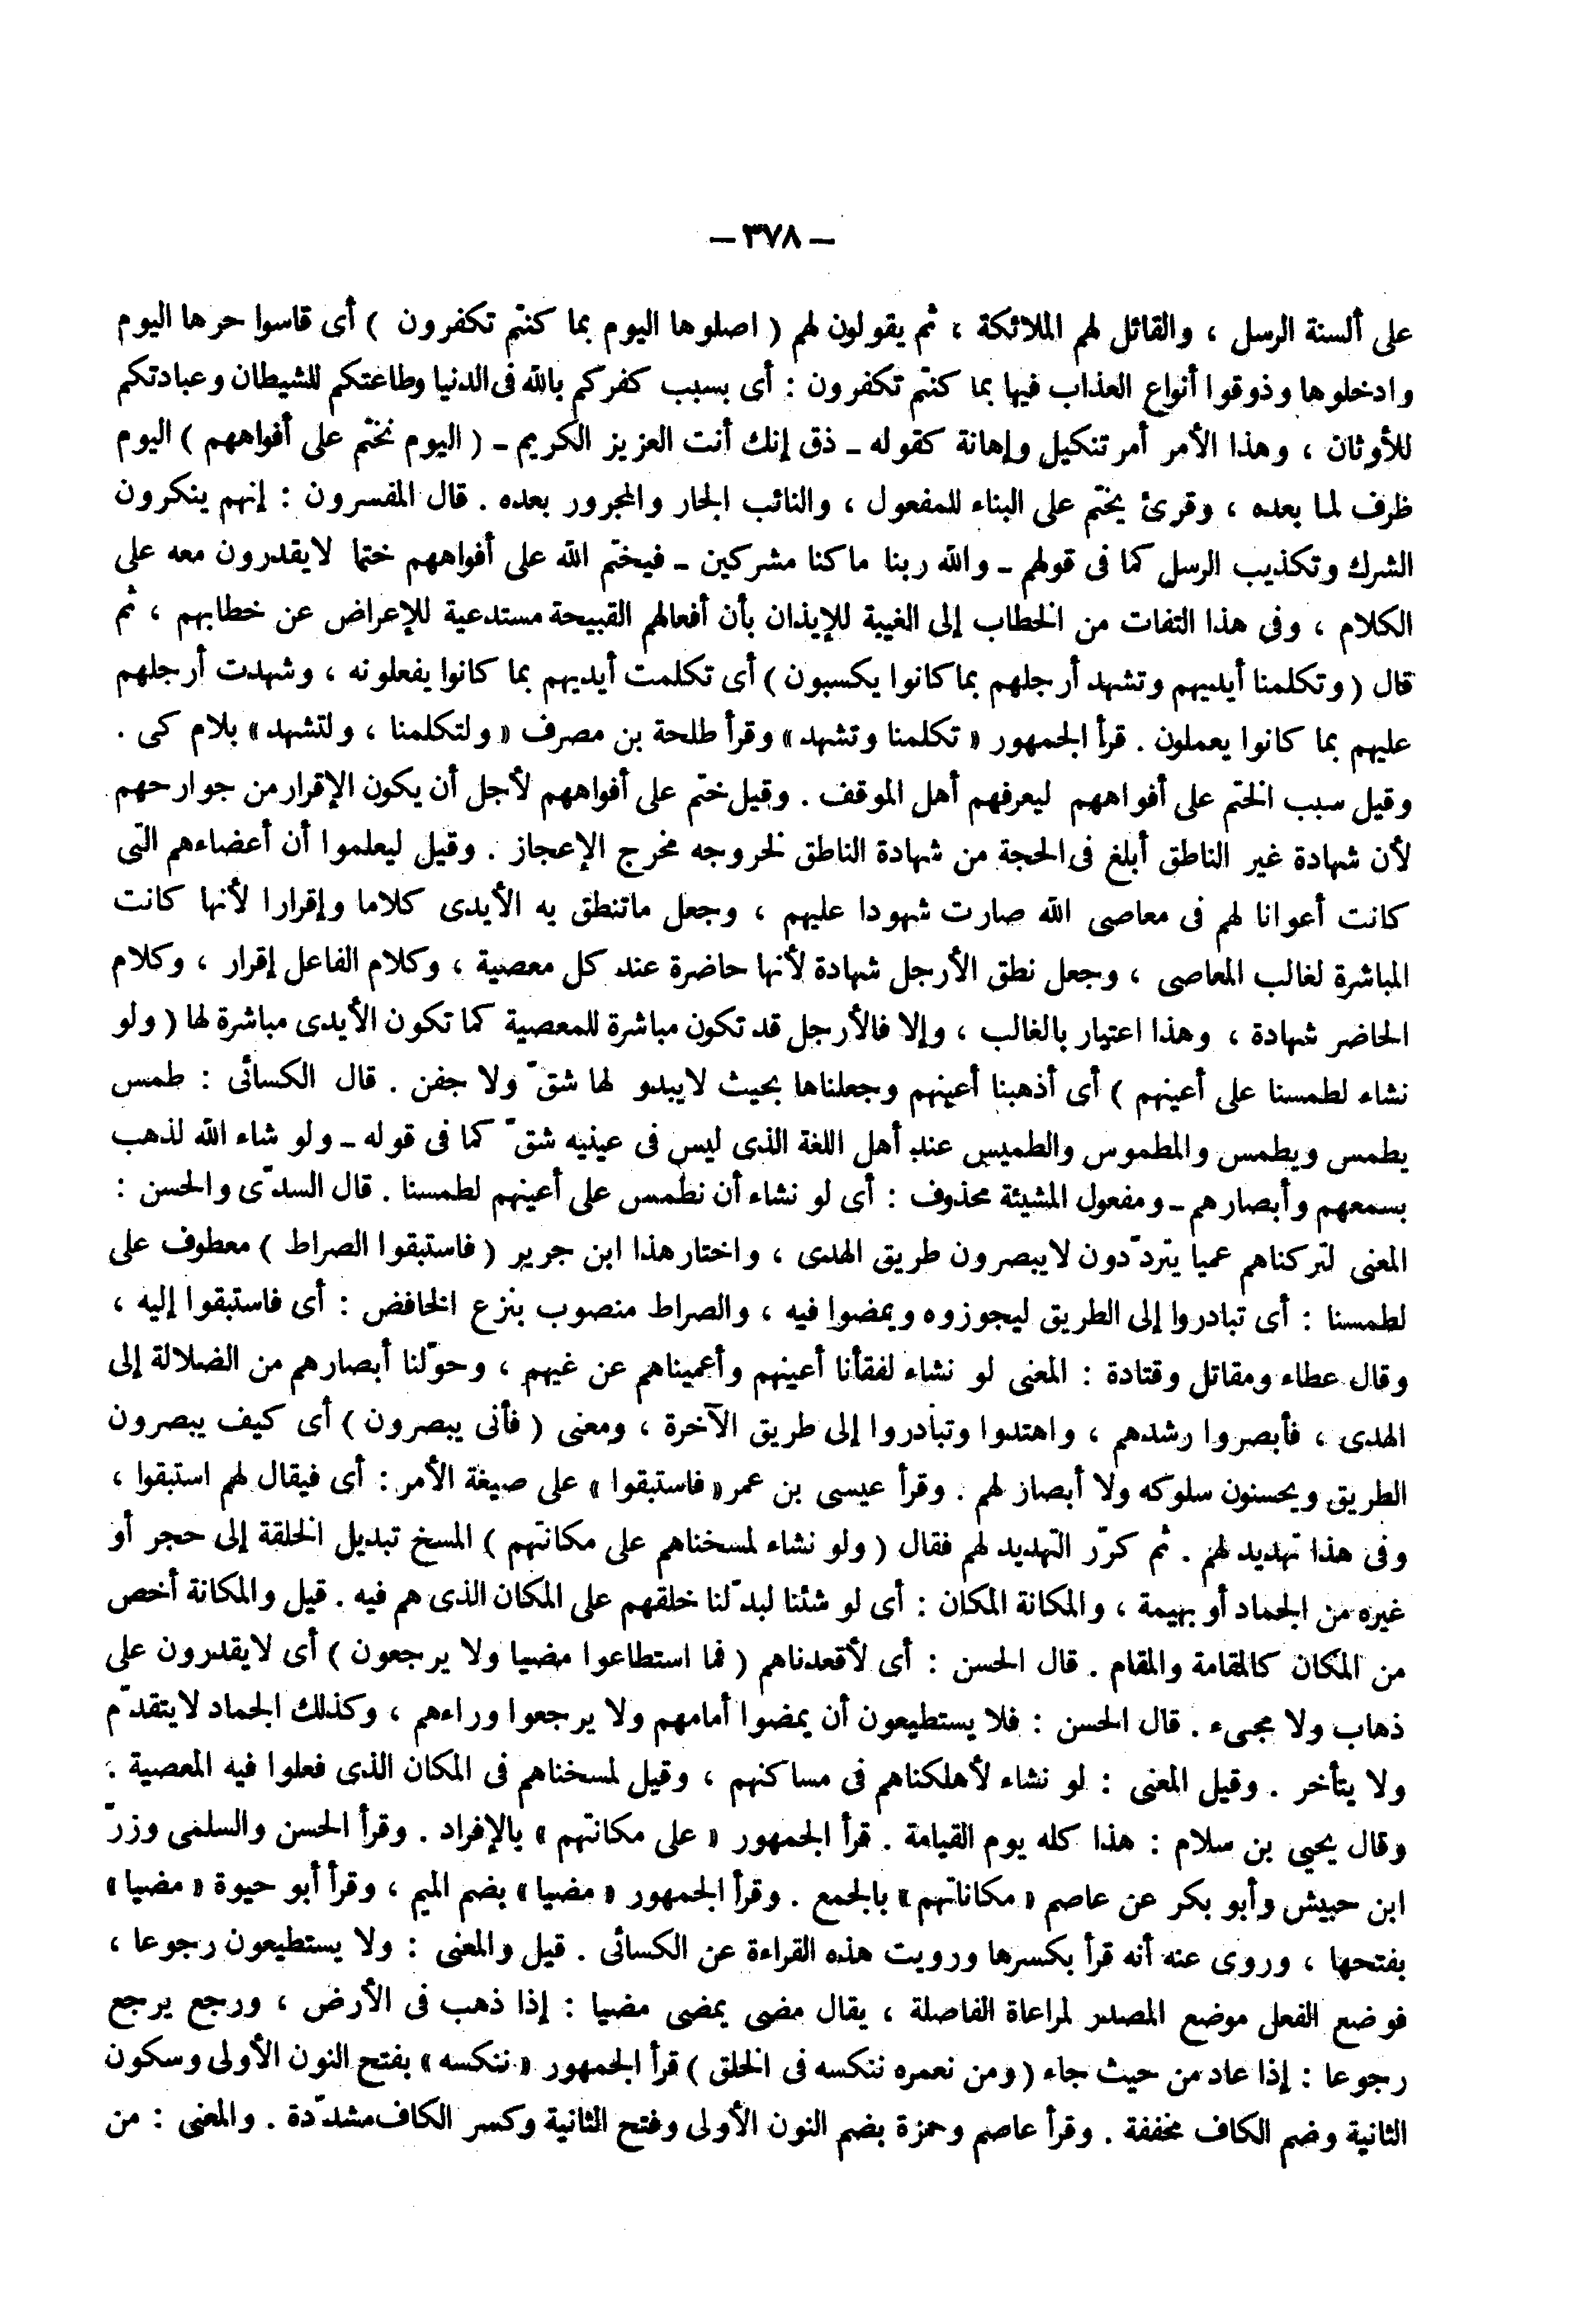 – ٣٧٨ –
على ألسنة الرسل ، والقائل لهم الملائكة ، ثم يقولون لهم ( اصلوها اليوم بما كنتم تكفرون ) أى قاسوا حرها اليوم
وادخلوها وذوقوا أنواع العذاب فيها بما كنتم تكفرون : أى بسبب كفركم بالله فى الدنيا وطاعتكم للشيطان وعبادتكم
للأوثان ، وهذا الأمر أمر تنكيل وإهانة كقوله ـ ذق إنك أنت العزيز الكريم ـ ( اليوم نختم على أفواههم ) اليوم
ظرف لما بعده ، وقرئ يختم على البناء للمفعول ، والنائب الجار والمجرور بعده . قال المفسرون : إنهم ينكرون
الشرك وتكذيب الرسل كما فى قولهم ـ والله ربنا ما كنا مشركين ـ فيختم الله على أفواههم ختما لايقدرون معه على
الكلام ، وفى هذا التفات من الخطاب إلى الغيبة للإيذان بأن أفعالهم القبيحة مستدعية للإعراض عن خطابهم ، ثم
قال ( وتكلمنا أيديهم وتشهد أرجلهم بما كانوا يكسبون ) أى تكلمت أيديهم بما كانوا يفعلونه ، وشهدت أرجلهم
عليهم بما كانوا يعملون . قرأ الجمهور « تكلمنا وتشهد » وقرأ طلحة بن مصرف « ولتكلمنا ، ولتشهد » بلام كى .
وقيل سبب الختم على أفواههم ليعرفهم أهل الموقف . وقيل ختم على أفواههم لأجل أن يكون الإقرار من جوارحهم
لأن شهادة غير الناطق أبلغ فى الحجة من شهادة الناطق لخروجه مخرج الإعجاز . وقيل ليعلموا أن أعضاءهم التى
كانت أعوانا لهم فى معاصى الله صارت شهودا عليهم ، وجعل ماتنطق به الأيدى كلاما وإقرارا لأنها كانت
المباشرة لغالب المعاصى ، وجعل نطق الأرجل شهادة لأنها حاضرة عند كل معصية ، وكلام الفاعل إقرار ، وكلام
الحاضر شهادة ، وهذا اعتبار بالغالب ، وإلا فالأرجل قد تكون مباشرة للمعصية كما تكون الأيدى مباشرة لها ( ولو
نشاء لطمسنا على أعينهم ) أى أذهبنا أعينهم وجعلناها بحيث لايبدو لها شقّ ولا جفن . قال الكسائى : طمس
يطمس ويطمس والمطموس والطميس عند أهل اللغة الذى ليس فى عينيه شقّ كما فى قوله ـ ولو شاء الله لذهب
بسمعهم وأبصارهم ـ ومفعول المشيئة محذوف : أى لو نشاء أن نطمس على أعينهم لطمسنا . قال السدّى والحسن :
المعنى لتركناهم عميا يتردّدون لايبصرون طريق الهدى ، واختار هذا ابن جرير ( فاستبقوا الصراط ) معطوف على
لطمسنا : أى تبادروا إلى الطريق ليجوزوه ويمضوا فيه ، والصراط منصوب بنزع الخافض : أى فاستبقوا إليه ،
وقال عطاء ومقاتل وقتادة : المعنى لو نشاء لفقأنا أعينهم وأعميناهم عن غيهم ، وحوّلنا أبصارهم من الضلالة إلى
الهدى ، فأبصروا رشدهم ، واهتدوا وتبادروا إلى طريق الآخرة ، ومعنى ( فأنى يبصرون ) أى كيف يبصرون
الطريق ويحسنون سلوكه ولا أبصار لهم . وقرأ عيسى بن عمر « فاستبقوا » على صيغة الأمر : أى فيقال لهم استبقوا ،
وفى هذا تهديد لهم . ثم كرّر التهديد لهم فقال ( ولو نشاء لمسخناهم على مكانتهم ) المسخ تبديل الخلقة إلى حجر أو
غيره من الجماد أو بهيمة ، والمكانة المكان : أى لو شئنا لبدّلنا خلقهم على المكان الذى هم فيه . قيل والمكانة أخص
من المكان كالمقامة والمقام . قال الحسن : أى لأقعدناهم ( فما استطاعوا مضيا ولا يرجعون ) أى لايقدرون على
ذهاب ولا مجىء . قال الحسن : فلا يستطيعون أن يمضوا أمامهم ولا يرجعوا وراءهم ، وكذلك الجماد لايتقدّم
ولا يتأخر . وقيل المعنى : لو نشاء لأهلكناهم فى مساكنهم ، وقيل لمسخناهم فى المكان الذى فعلوا فيه المعصية .
وقال يحيى بن سلام : هذا كله يوم القيامة . قرأ الجمهور « على مكانتهم » بالإفراد . وقرأ الحسن والسلمى وزرّ
ابن حبيش وأبو بكر عن عاصم « مكاناتهم » بالجمع . وقرأ الجمهور « مضيا » بضم الميم ، وقرأ أبو حيوة « مضيا »
بفتحها ، وروى عنه أنه قرأ بكسرها ورويت هذه القراءة عن الكسائى . قيل والمعنى : ولا يستطيعون رجوعا ،
فوضع الفعل موضع المصدر لمراعاة الفاصلة ، يقال مضى يمضى مضيا : إذا ذهب فى الأرض ، ورجع يرجع
رجوعا : إذا عاد من حيث جاء ( ومن نعمره ننكسه فى الخلق ) قرأ الجمهور « ننكسه » بفتح النون الأولى وسكون
الثانية وضم الكاف مخففة . وقرأ عاصم وحمزة بضم النون الأولى وفتح الثانية وكسر الكاف مشدّدة . والمعنى : من